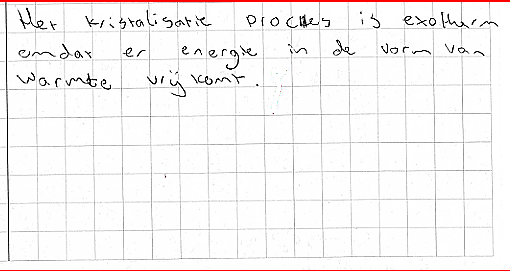 Het kristalisatie proces is exotherm
omdat er energie in de vorm van
warmte vrij komt.